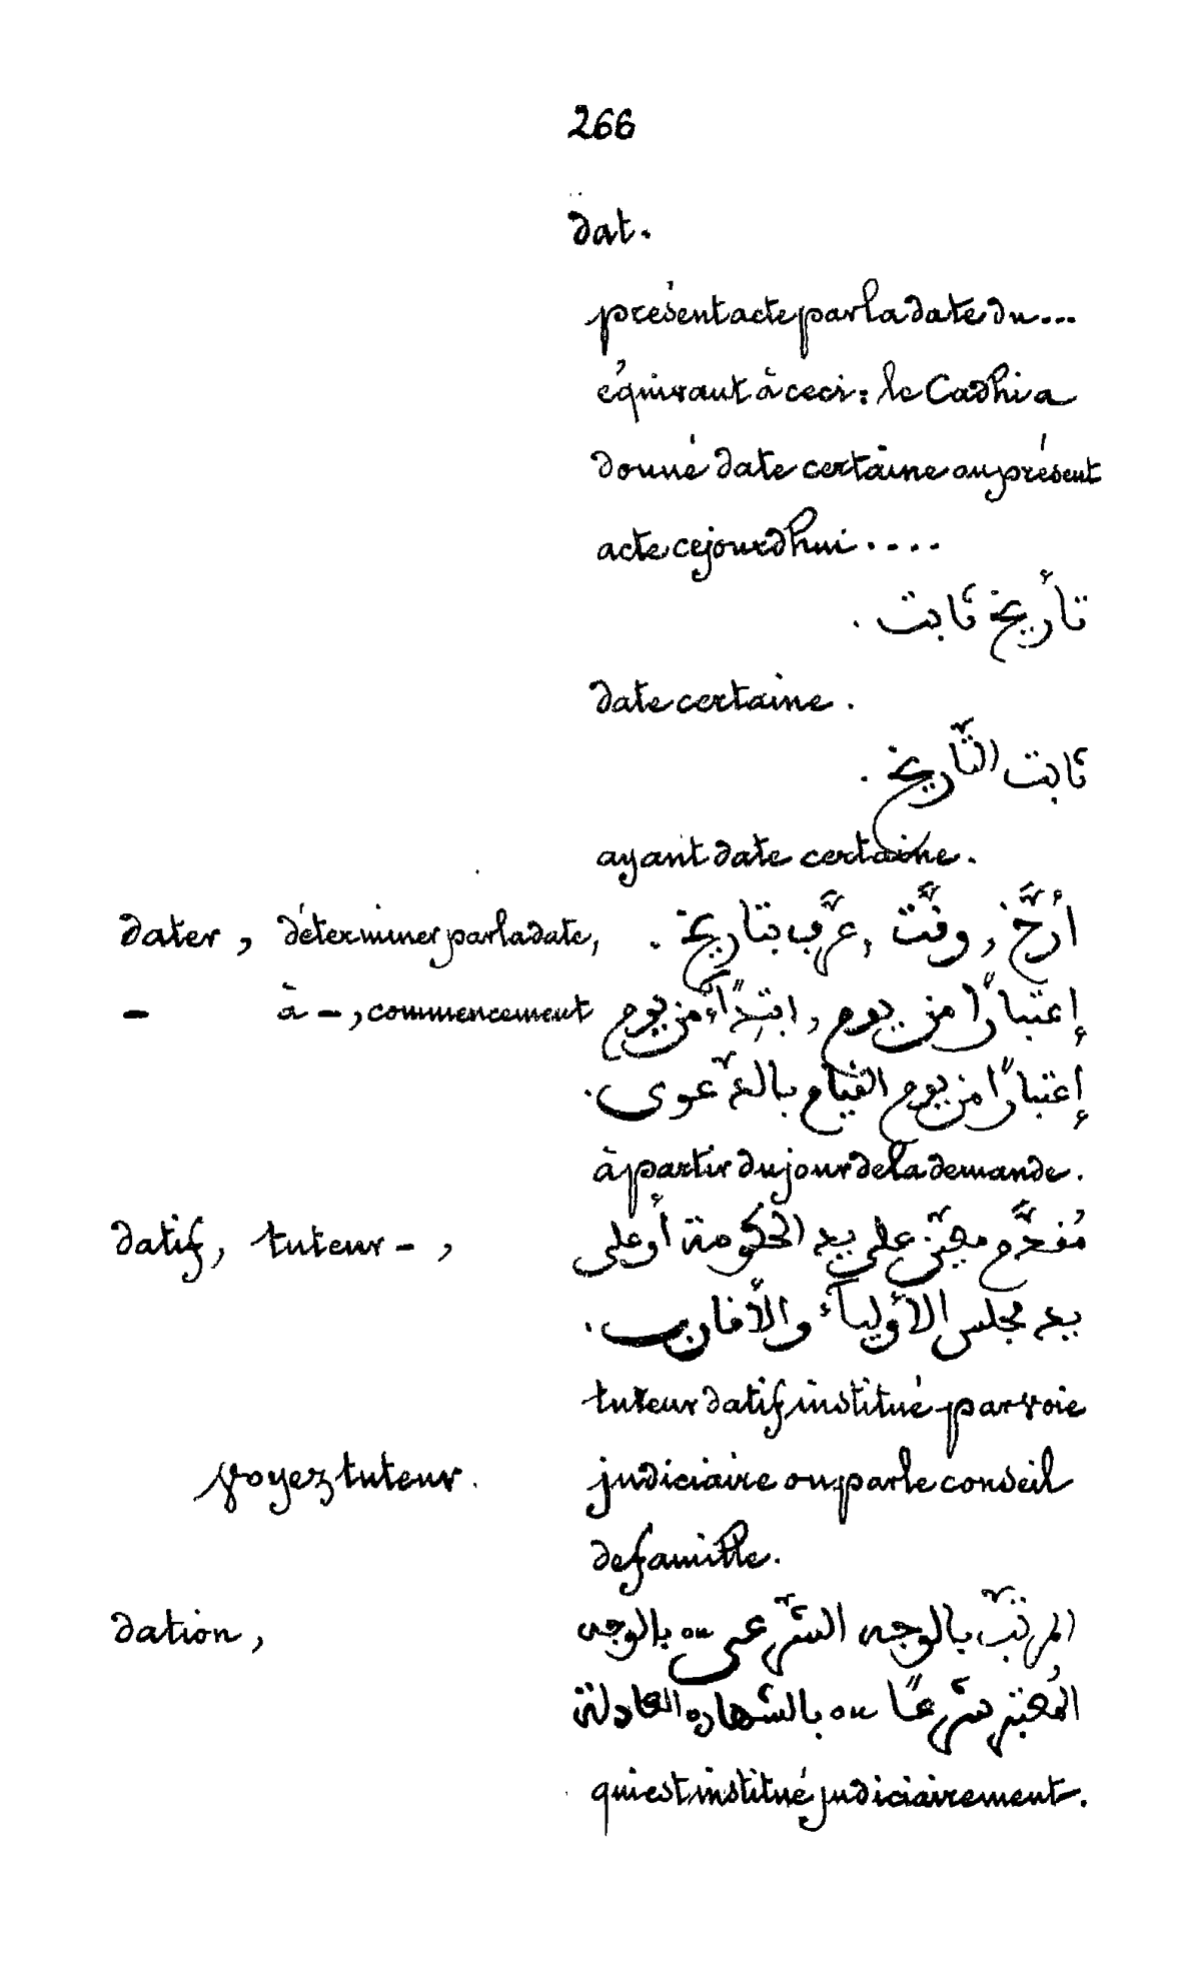 266
dat.
présent acte par la date du...
équivaut à ceci: le Cadhi a
donné date certaine au présent
acte cejourd'hui....
تأريخ ثابت .
date certaine.
ثابت التّاريخ .
ayant date certaine.
dater, déterminer par la date, أرَّخ, وقَّت, عرَّف بتاريخ .
- à -, commencement إعتبارًا من يوم, ابتِداًء من يوم
إعتبارًا من يوم القيام بالدّعوى.
à partir du jour de la demande.
datif, tuteur -, مُقدَّم معيّن على يد الحكومة أو على
يد مجلس الأوليآء والأقارب.
tuteur datif, institué par voie
voyez tuteur. judiciaire ou par le conseil
de famille.
dation, المرتّب بالوجه الشّرعى ou بالوجه
المُعتبر شرعًا ou بالشهاده العادلة
qui est institué judiciairement.